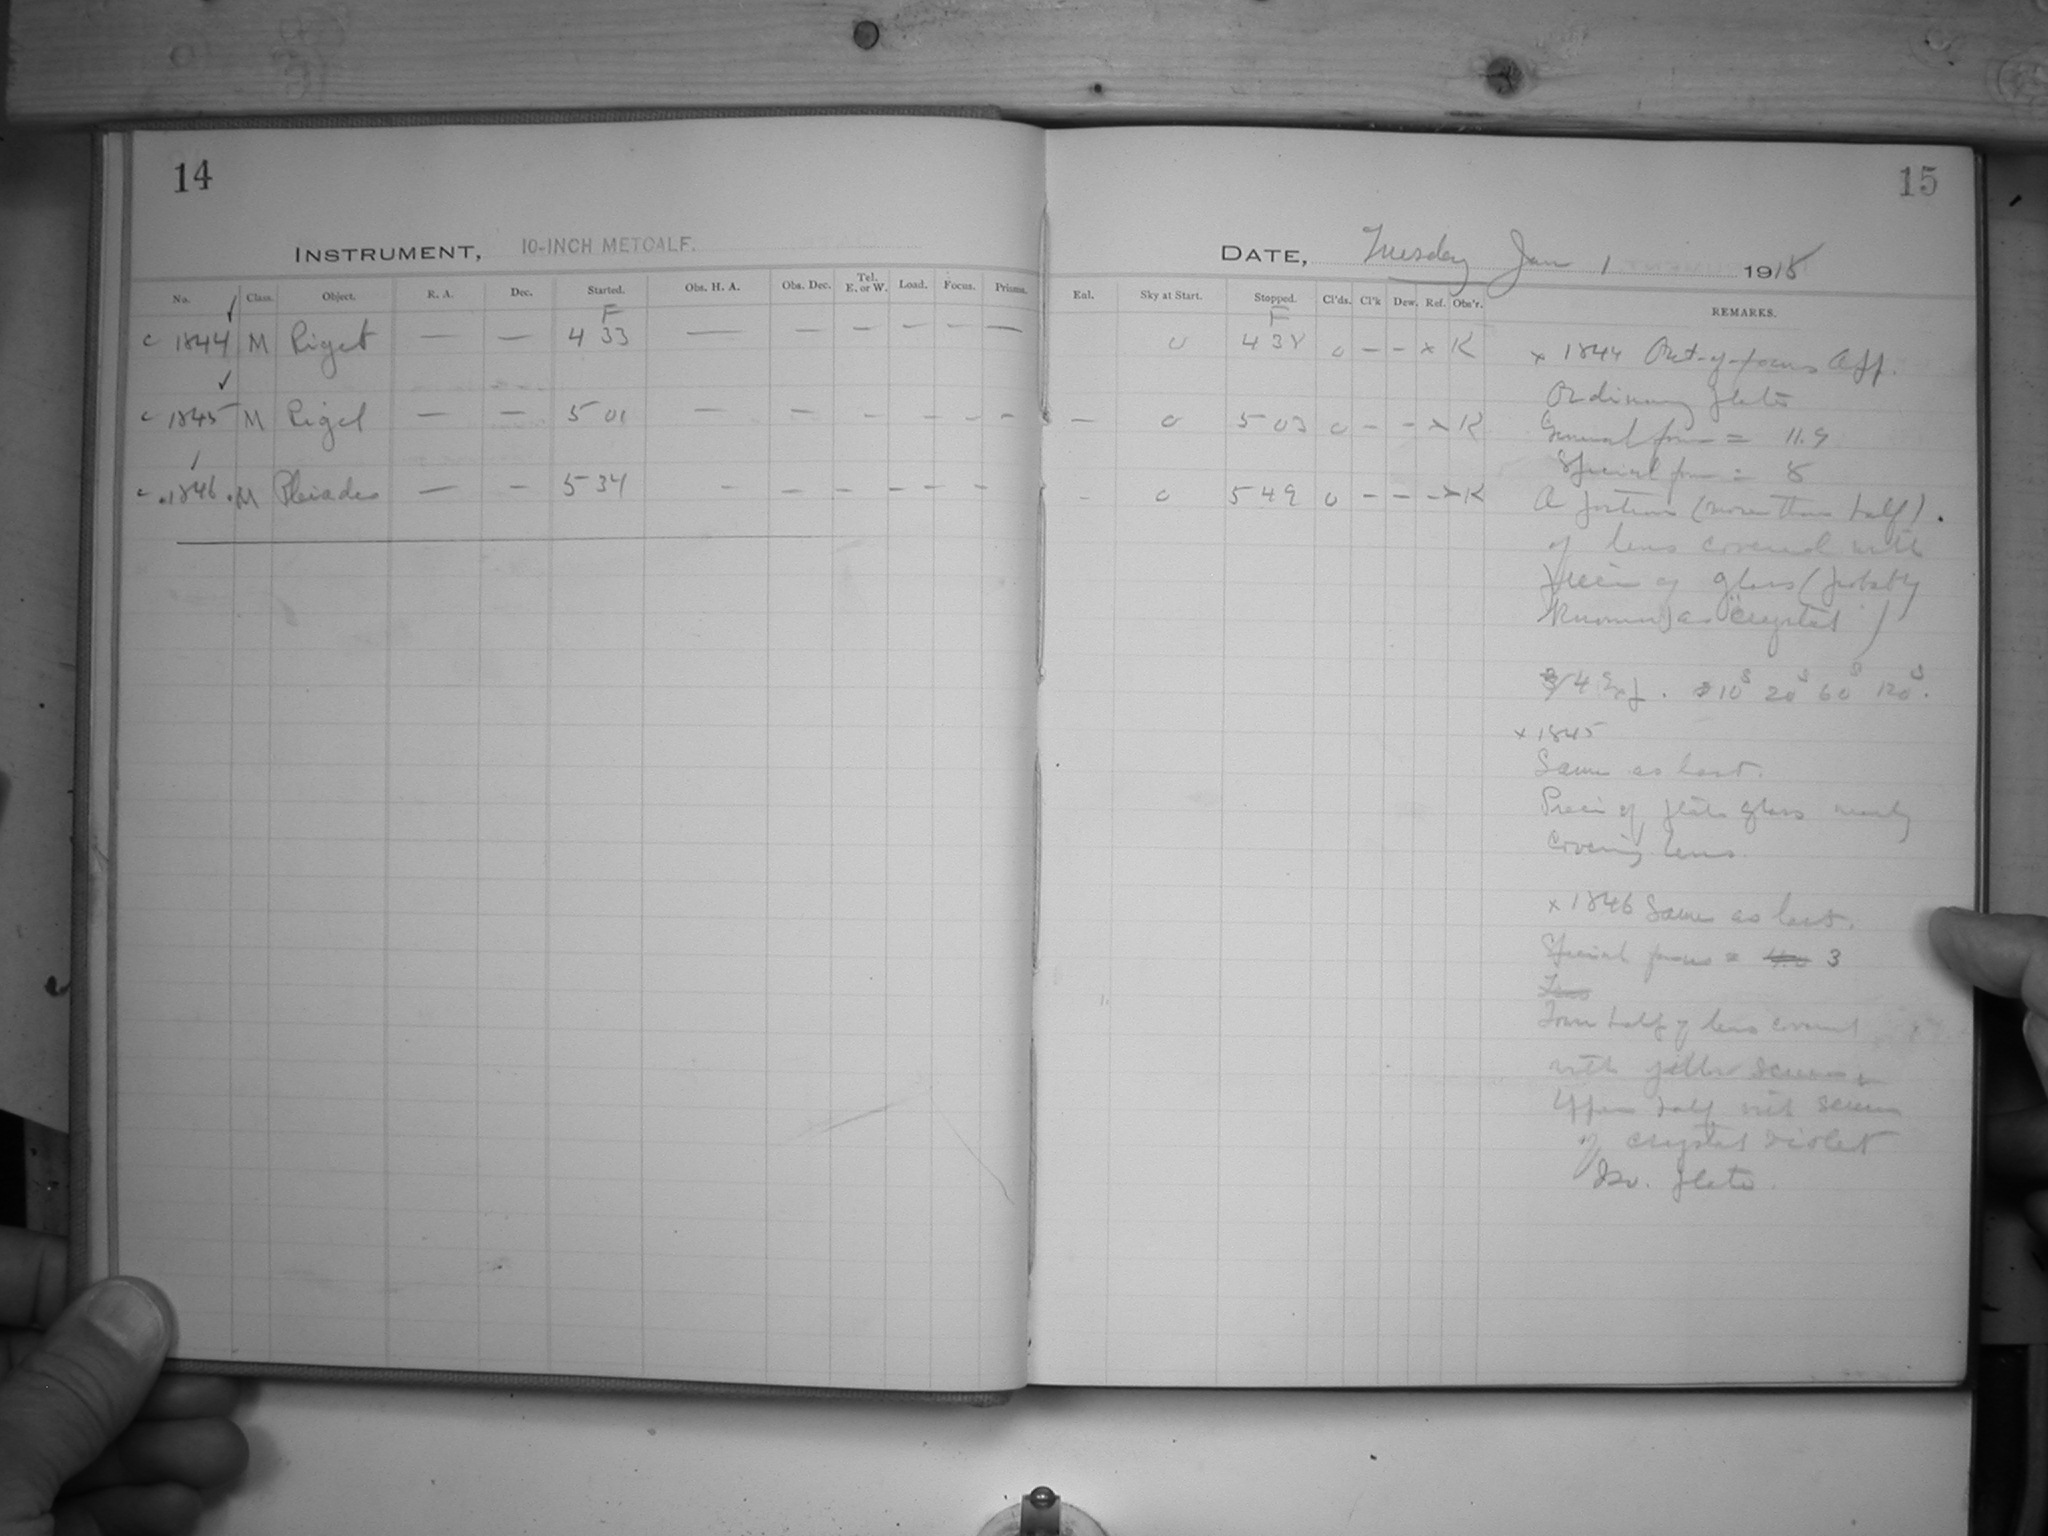 14
15
INSTRUMENT, 10-INCH METCALF.
DATE, Tuesday Jan 1 1918
No. Class. Object. R. A. Dec. Started. Obs. H. A. Obs. Dec. Tel. E. or W. Load. Focus. Prisms.
Enl. Sky at Start. Stopped. Cl'ds. Cl'k Dew. Ref. Obs'r. REMARKS.
F
F
c 1844 M Rigel — — 4 33 — — — — — —
0 4 38 0 – – x K
c 1845 M Rigel — — 5 01 — — – – – –
— 0 5 03 0 – – x K
c 1846 M Pleiades — — 5 34 – – – – – –
- 0 5 49 0 – – – x K
x 1844 Out-of-focus App.
Ordinary plate
General focus = 11.9
Special focus = 8
A portion (more than half)
of lens covered with
piece of glass (probably
known as "crystal")
4 Exp. 10s 20s 60s 120s.
x 1845
Same as last.
Piece of plate glass nearly
covering lens.
x 1846 Same as last.
Special focus = 3
Lens
Lower half of lens covered
with yellow screen &
Upper half with screen
of crystal violet
Iso. plate.